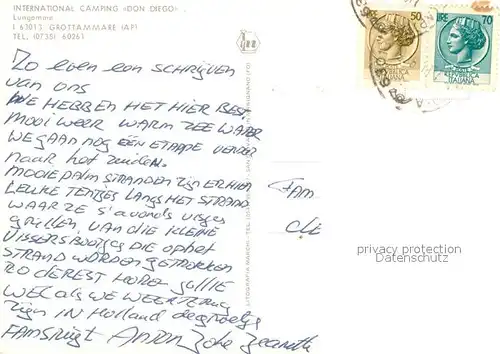 INTERNATIONAL CAMPING «DON DIEGO»
Lungomare
I 63013 GROTTAMMARE (AP)
TEL. (0735) 60261
50
LIRE 70
ITALIANA
ITALIANA
Zo even een SCHRIJVEN
van ons
WE HEBBEN HET HIER BEST
mooi weer WARM ZEE WATER
WE gaan nog EEN ETAPPE verder
naar het zuiden.
MOOIE PALM STRANDEN ZIJN ER HIER
LEUKE TENTJES LANGS HET STRAND
WAAR ZE S'avonds visjes
grillen, VAN die kleine
VISSERSBOOTJES DIE op het
STRAND WORDEN GETROKKEN
ZO DE REST HOREN jullie
WEL als WE WEER TERUG
zijn IN Holland de groetjes
FAM Anton
FAM
LITOGRAFIA MARCHI - TEL.
privacy protection
Datenschutz